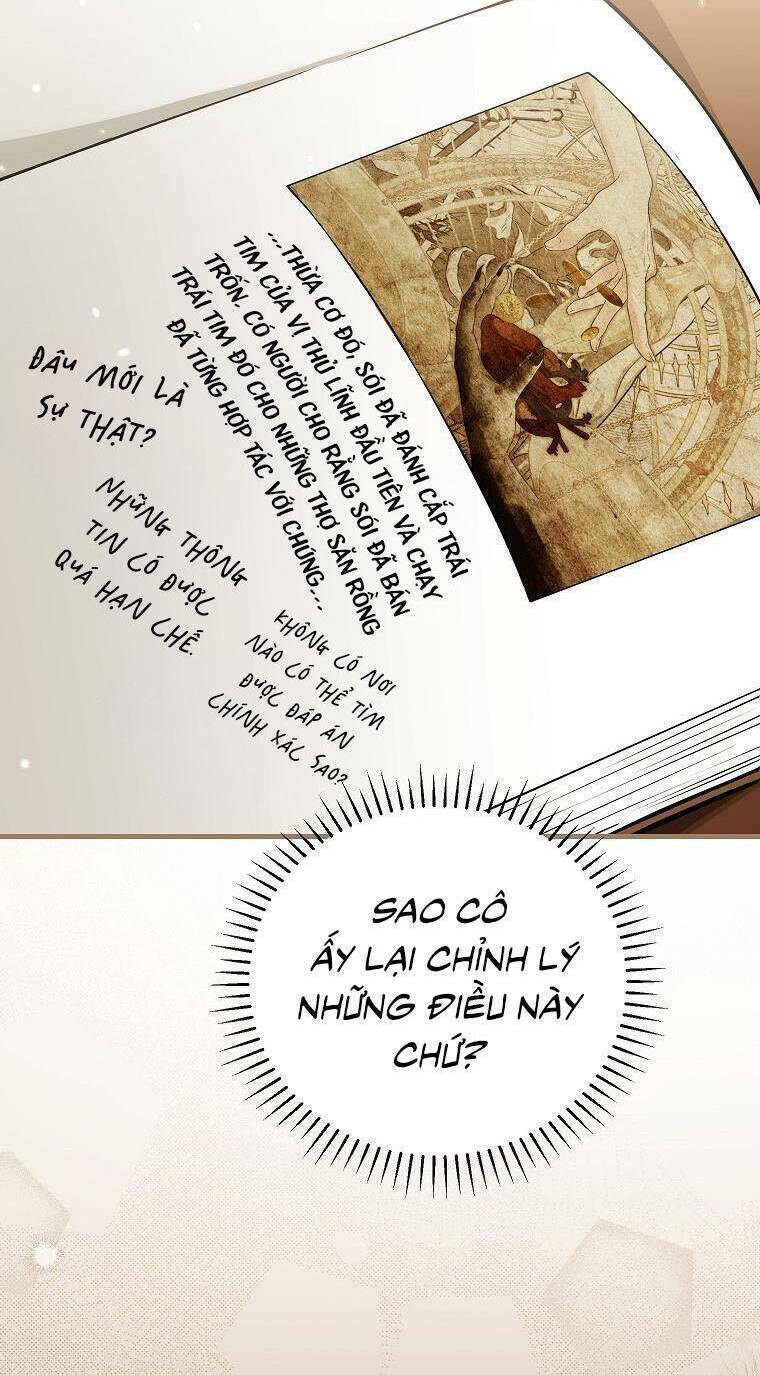 ...THỪA CƠ ĐÓ, SÓI ĐÃ ĐÁNH CẮP TRÁI
TIM CỦA VỊ THỦ LĨNH ĐẦU TIÊN VÀ CHẠY
TRỐN. CÓ NGƯỜI CHO RẰNG SÓI ĐÃ BÁN
TRÁI TIM ĐÓ CHO NHỮNG THỢ SĂN RỒNG
ĐÃ TỪNG HỢP TÁC VỚI CHÚNG...
ĐÂU MỚI LÀ
SỰ THẬT?
NHỮNG THÔNG
TIN CÓ ĐƯỢC
QUÁ HẠN CHẾ.
KHÔNG CÓ NƠI
NÀO CÓ THỂ TÌM
ĐƯỢC ĐÁP ÁN
CHÍNH XÁC SAO?
SAO CÔ
ẤY LẠI CHỈNH LÝ
NHỮNG ĐIỀU NÀY
CHỨ?